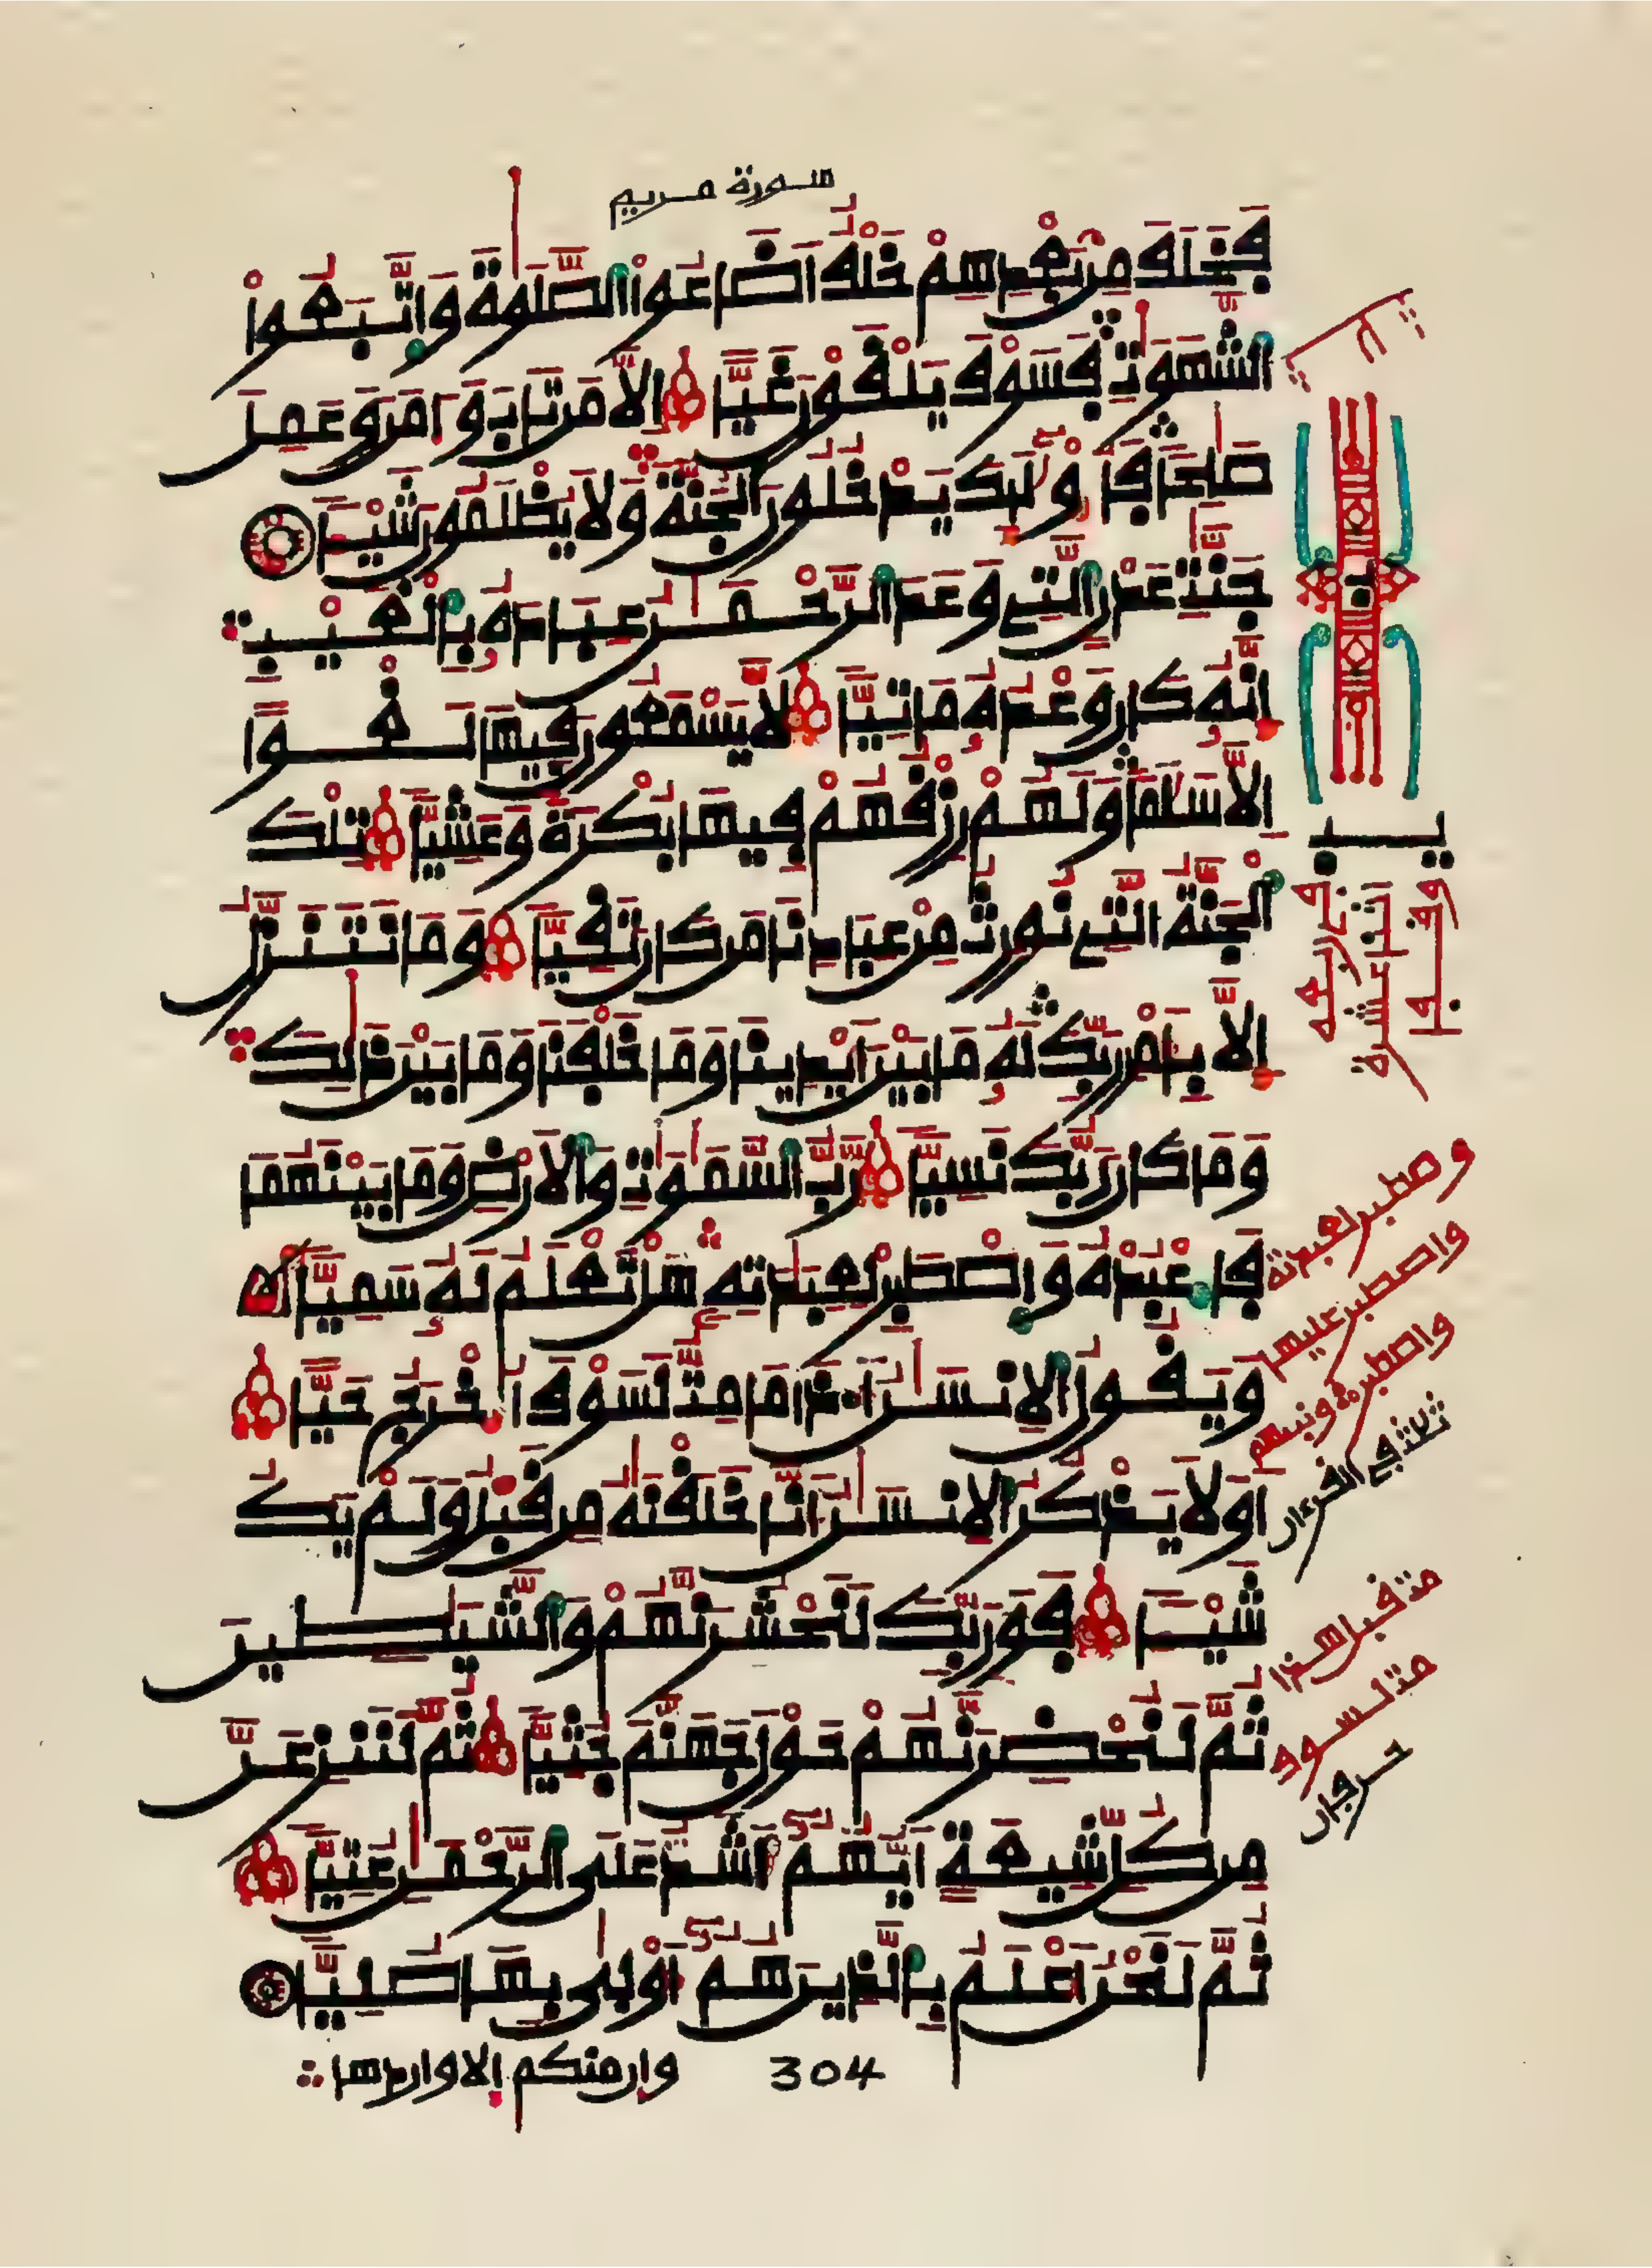 سورة مريم
فَخَلَفَ مِنۢ بَعْدِهِمْ خَلْفٌ اَضَاعُواْ الصَّلَوٰةَ وَاتَّبَعُواْ
الشَّهَوَٰتِۖ فَسَوْفَ يَلْقَوْنَ غَيّاً اِلَّا مَن تَابَ وَءَامَنَ وَعَمِلَ
صَٰلِحاً فَأُوْلَٰٓئِكَ يَدْخُلُونَ اَ۬لْجَنَّةَ وَلَا يُظْلَمُونَ شَيْـٔاً
جَنَّٰتِ عَدْنٍ اِ۬لتِے وَعَدَ اَ۬لرَّحْمَٰنُ عِبَادَهُۥ بِالْغَيْبِ
إِنَّهُۥ كَانَ وَعْدُهُۥ مَاتِيّاً لَّا يَسْمَعُونَ فِيهَا لَغْواً
اِلَّا سَلَٰماً وَلَهُمْ رِزْقُهُمْ فِيهَا بُكْرَةً وَعَشِيّاً تِلْكَ
اَ۬لْجَنَّةُ اُ۬لتِے نُورِثُ مِنْ عِبَادِنَا مَن كَانَ تَقِيّاً وَمَا نَتَنَزَّلُ
إِلَّا بِأَمْرِ رَبِّكَ لَهُۥ مَا بَيْنَ أَيْدِينَا وَمَا خَلْفَنَا وَمَا بَيْنَ ذَٰلِكَ
وَمَا كَانَ رَبُّكَ نَسِيّاً رَّبُّ اُ۬لسَّمَٰوَٰتِ وَالَارْضِ وَمَا بَيْنَهُمَا
فَاعْبُدْهُ وَاصْطَبِرْ لِعِبَٰدَتِهِۦ هَلْ تَعْلَمُ لَهُۥ سَمِيّاً
وَيَقُولُ اُ۬لِانسَٰنُ أَ۟ذَا مَا مِتُّ لَسَوْفَ أُخْرَجُ حَيّاً
اَوَلَا يَذْكُرُ اُ۬لِانسَٰنُ أَنَّا خَلَقْنَٰهُ مِن قَبْلُ وَلَمْ يَكُ
شَيْـٔاً فَوَرَبِّكَ لَنَحْشُرَنَّهُمْ وَالشَّيَٰطِينَ
ثُمَّ لَنُحْضِرَنَّهُمْ حَوْلَ جَهَنَّمَ جُثِيّاً ثُمَّ لَنَنزِعَنَّ
مِن كُلِّ شِيعَةٍ اَيُّهُمُۥٓ أَشَدُّ عَلَى اَ۬لرَّحْمَٰنِ عُتِيّاً
ثُمَّ لَنَحْنُ أَعْلَمُ بِالذِينَ هُمُۥٓ أَوْلَىٰ بِهَا صُلِيّاً
304 وإن منكم إلا واردها
يب
وصطبر لعبدته
واصطبر عليها
واصطبر ونبئهم
ثلاث في القرءان
مت قبل هذا
مت لسوف
حرفان